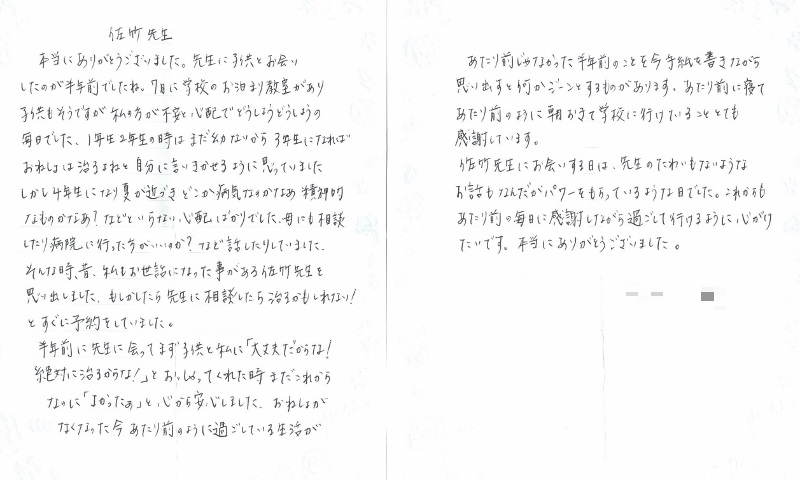 佐竹先生
本当にありがとうございました。先生に子供とお会い
したのが半年前でしたね。7月に学校のお泊まり教室があり
子供もそうですが私の方が不安と心配でどうしようどうしようの
毎日でした、1年生2年生の時はまだ幼ないから3年生になれば
おねしょは治るよねと自分に言いきかせるように思っていました
しかし4年生になり夏が近づきどこか病気なのかなあ精神的
なものかなあ?などといらない心配ばかりでした、母にも相談
したり病院に行った方がいいのか?など話したりしていました、
そんな時、昔、私もお世話になった事がある佐竹先生を
思い出しました、もしかしたら先生に相談したら治るかもしれない!
とすぐに予約をしていました。
半年前に先生に会ってまず子供と私に「大丈夫だからな!
絶対に治るからな!」とおっしゃってくれた時まだこれから
なのに「よかったぁ」と心から安心しました、おねしょが
なくなった今あたり前のように過ごしている生活が
あたり前じゃなかった半年前のことを今手紙を書きながら
思い出すと何かジーンとするものがあります。あたり前に寝て
あたり前のように朝おきて学校に行けていることとても
感謝しています。
佐竹先生にお会いする日は、先生のたわいもないような
お話もなんだがパワーをもらっているような日でした。これからも
あたり前の毎日に感謝しながら過ごして行けるように心がけ
たいです。本当にありがとうございました。